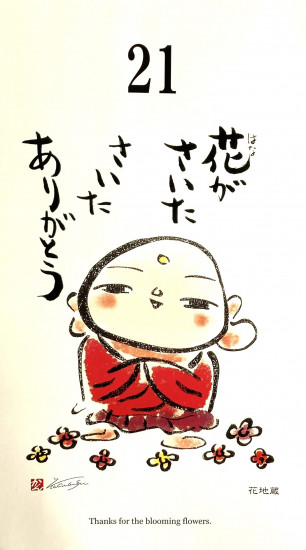 21
花がはな
さいた
さいた
ありがとう
花地蔵
Thanks for the blooming flowers.